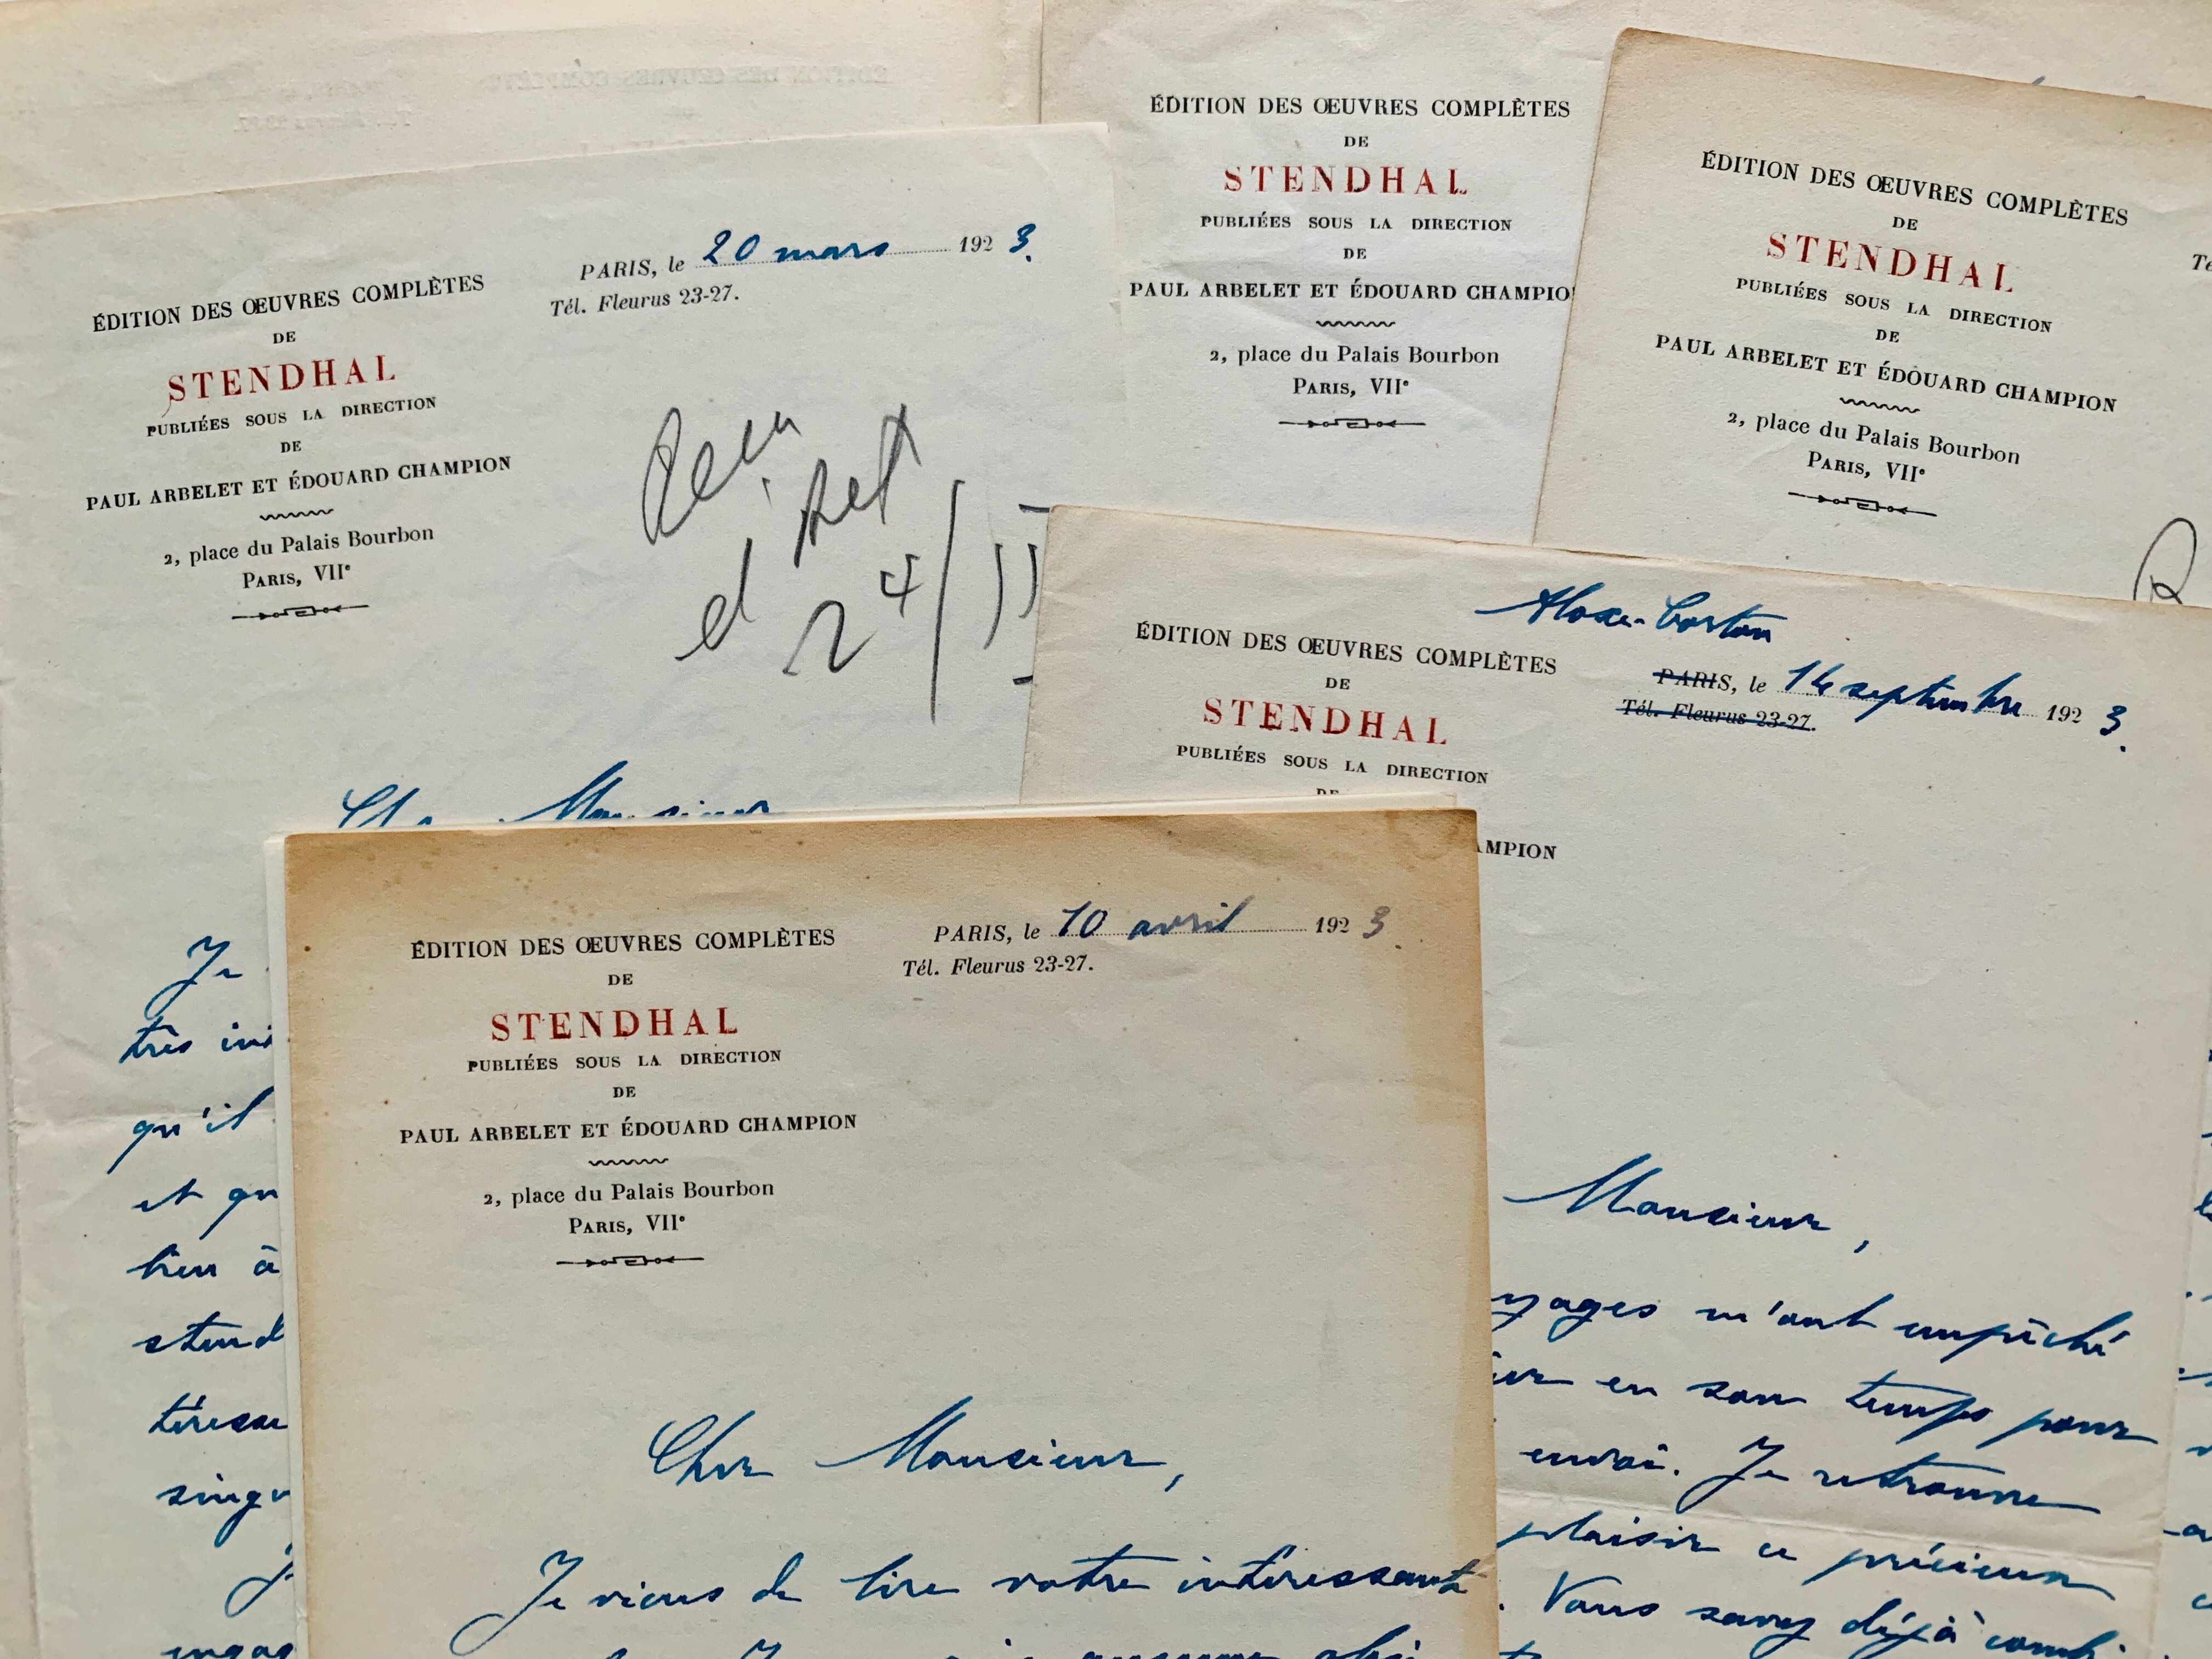 ÉDITION DES ŒUVRES COMPLÈTES
DE
STENDHAL
PUBLIÉES SOUS LA DIRECTION
DE
PAUL ARBELET ET ÉDOUARD CHAMPION
2, place du Palais Bourbon
PARIS, VIIe
PARIS, le 20 mars 1923.
Tél. Fleurus 23-27.
24/III
Cher Monsieur
Je
très
qu'il
et qu
bien à
stend
téresse
singu
J
engag
ÉDITION DES ŒUVRES COMPLÈTES
DE
STENDHAL
PUBLIÉES SOUS LA DIRECTION
DE
PAUL ARBELET ET ÉDOUARD CHAMPIO
2, place du Palais Bourbon
PARIS, VIIe
ÉDITION DES ŒUVRES COMPLÈTES
DE
STENDHAL
PUBLIÉES SOUS LA DIRECTION
DE
PAUL ARBELET ET ÉDOUARD CHAMPION
2, place du Palais Bourbon
PARIS, VIIe
Té
R
Aloxe-Corton
ÉDITION DES ŒUVRES COMPLÈTES
DE
STENDHAL
PUBLIÉES SOUS LA DIRECTION
DE
AMPION
PARIS, le 14 septembre 1923.
Tél. Fleurus 23-27.
Monsieur,
yages m'ont empêché
en son temps pour
envoi. Je retrouve
plaisir ce précieux
. Vous savez déjà combi
ÉDITION DES ŒUVRES COMPLÈTES
DE
STENDHAL
PUBLIÉES SOUS LA DIRECTION
DE
PAUL ARBELET ET ÉDOUARD CHAMPION
2, place du Palais Bourbon
PARIS, VIIe
PARIS, le 10 avril 1923.
Tél. Fleurus 23-27.
Cher Monsieur,
Je viens de lire votre intéressante